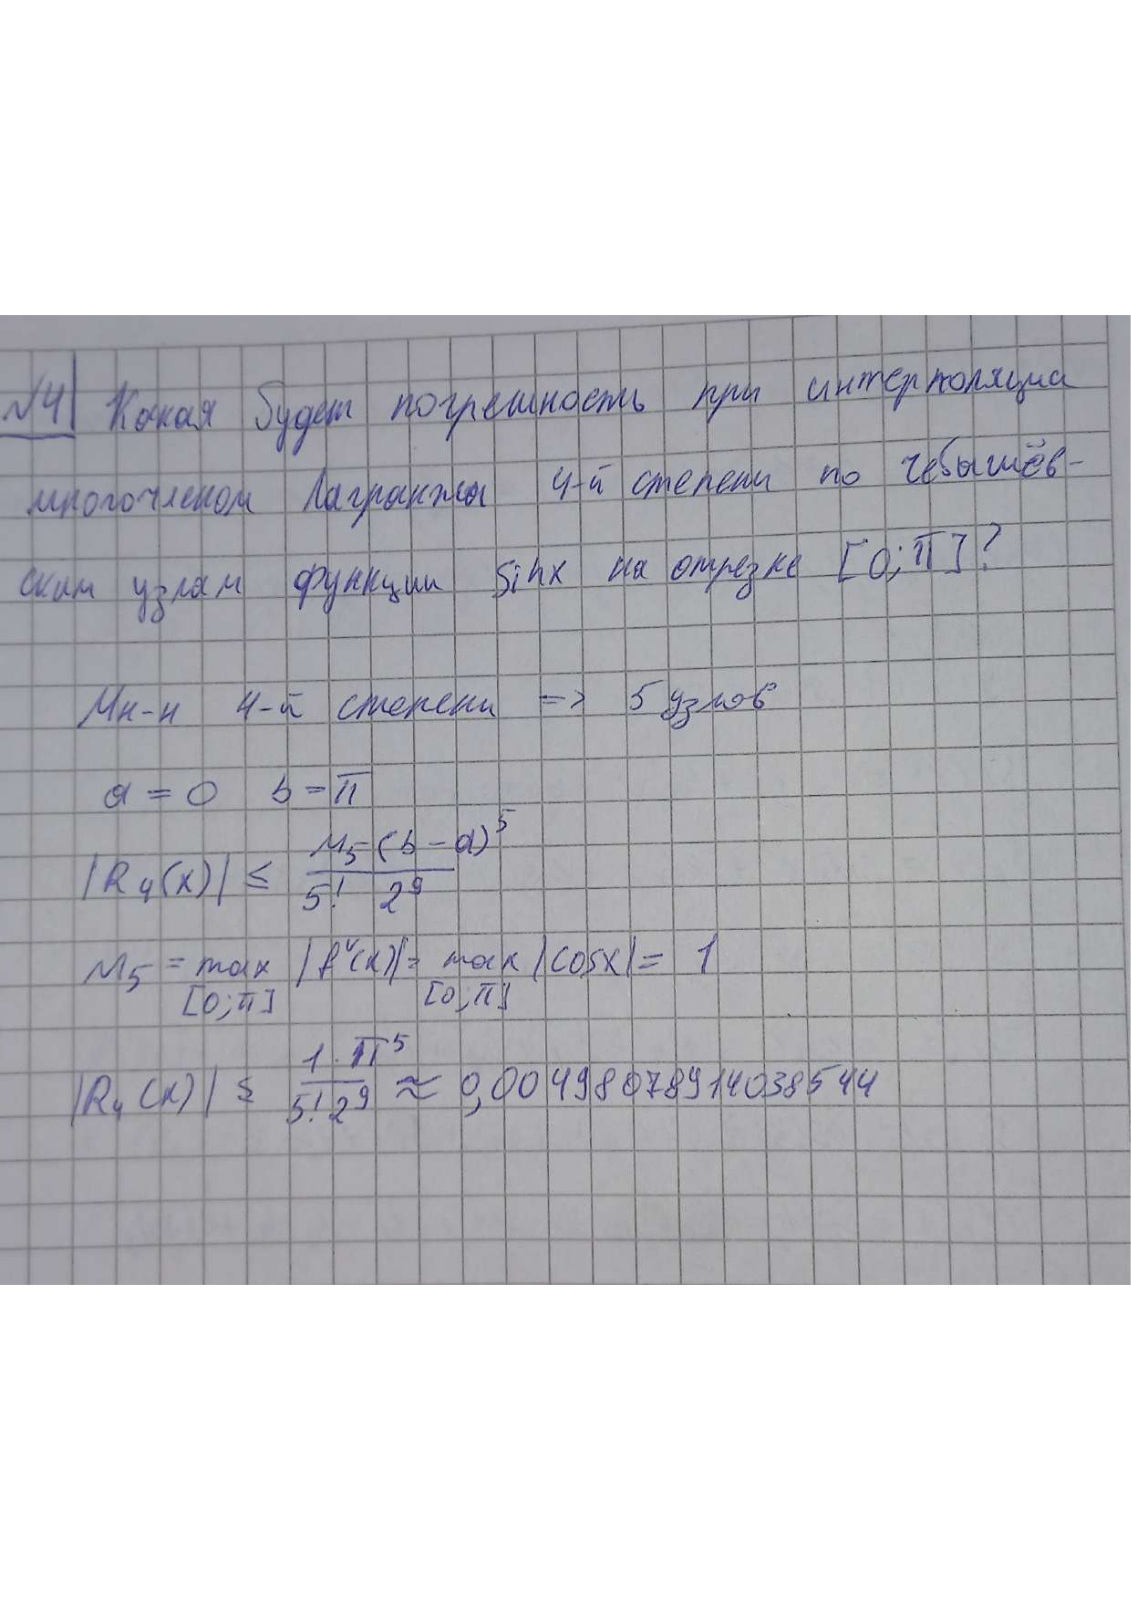 №4 Какая будет погрешность при интерполяции
многочленом Лагранжа 4-й степени по чебышёв-
ским узлам функции sinx на отрезке [0;π]?
Мн-н 4-й степени => 5 узлов
a = 0 b = π
|R₄(x)| ≤ M₅(b-a)⁵ / 5! 2⁹
M₅ = max |fⱽ(x)| = max |cosx| = 1
[0;π] [0;π]
|R₄(x)| ≤ 1·π⁵ / 5! 2⁹ ≈ 0,00498078914038544